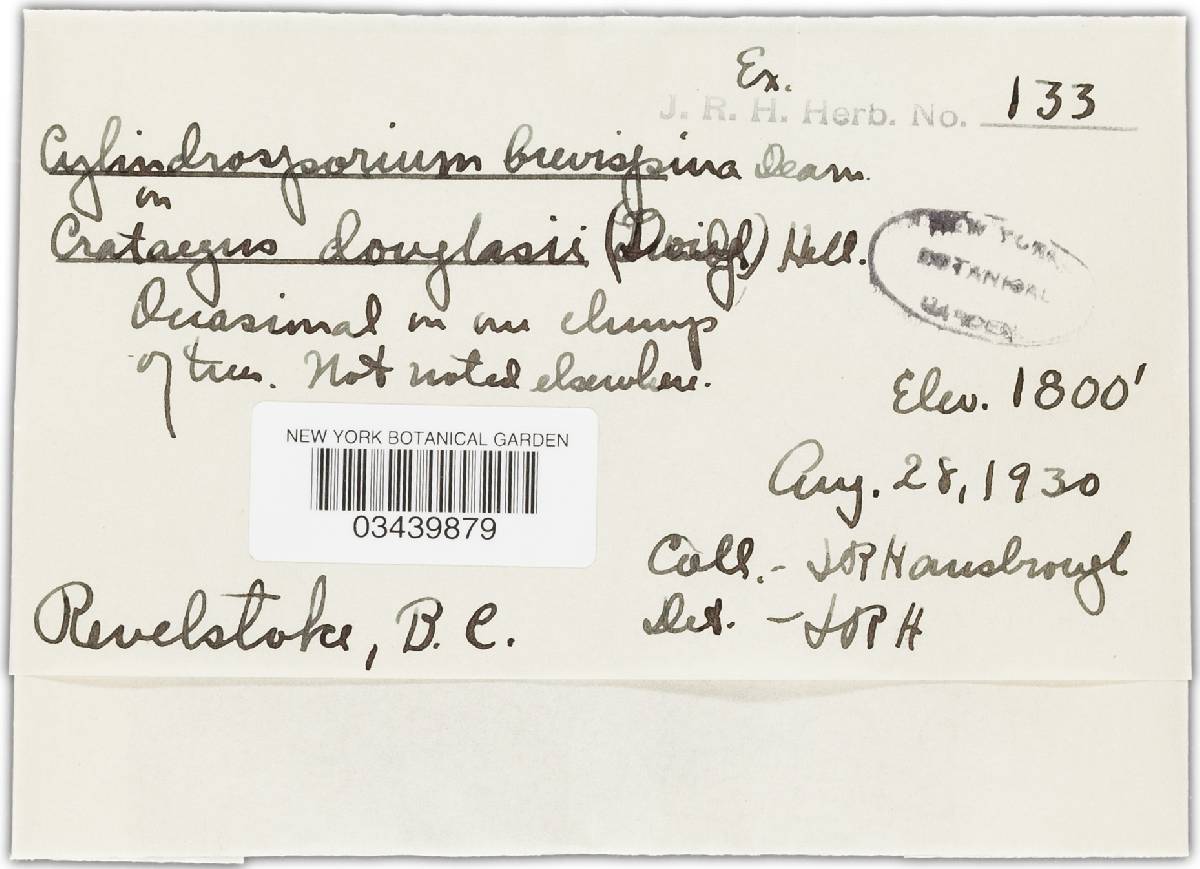 Ex.
J. R. H. Herb. No. 133
Cylindrosporium brevispina Dearn.
on
Crataegus douglasii (Lindl) Hell.
NEW YORK
BOTANICAL
GARDEN
Occasional on one clump
of trees. Not noted elsewhere.
Elev. 1800'
NEW YORK BOTANICAL GARDEN
03439879
Aug. 28, 1930
Coll. - JRHansbrough
Det. - JRH
Revelstoke, B. C.